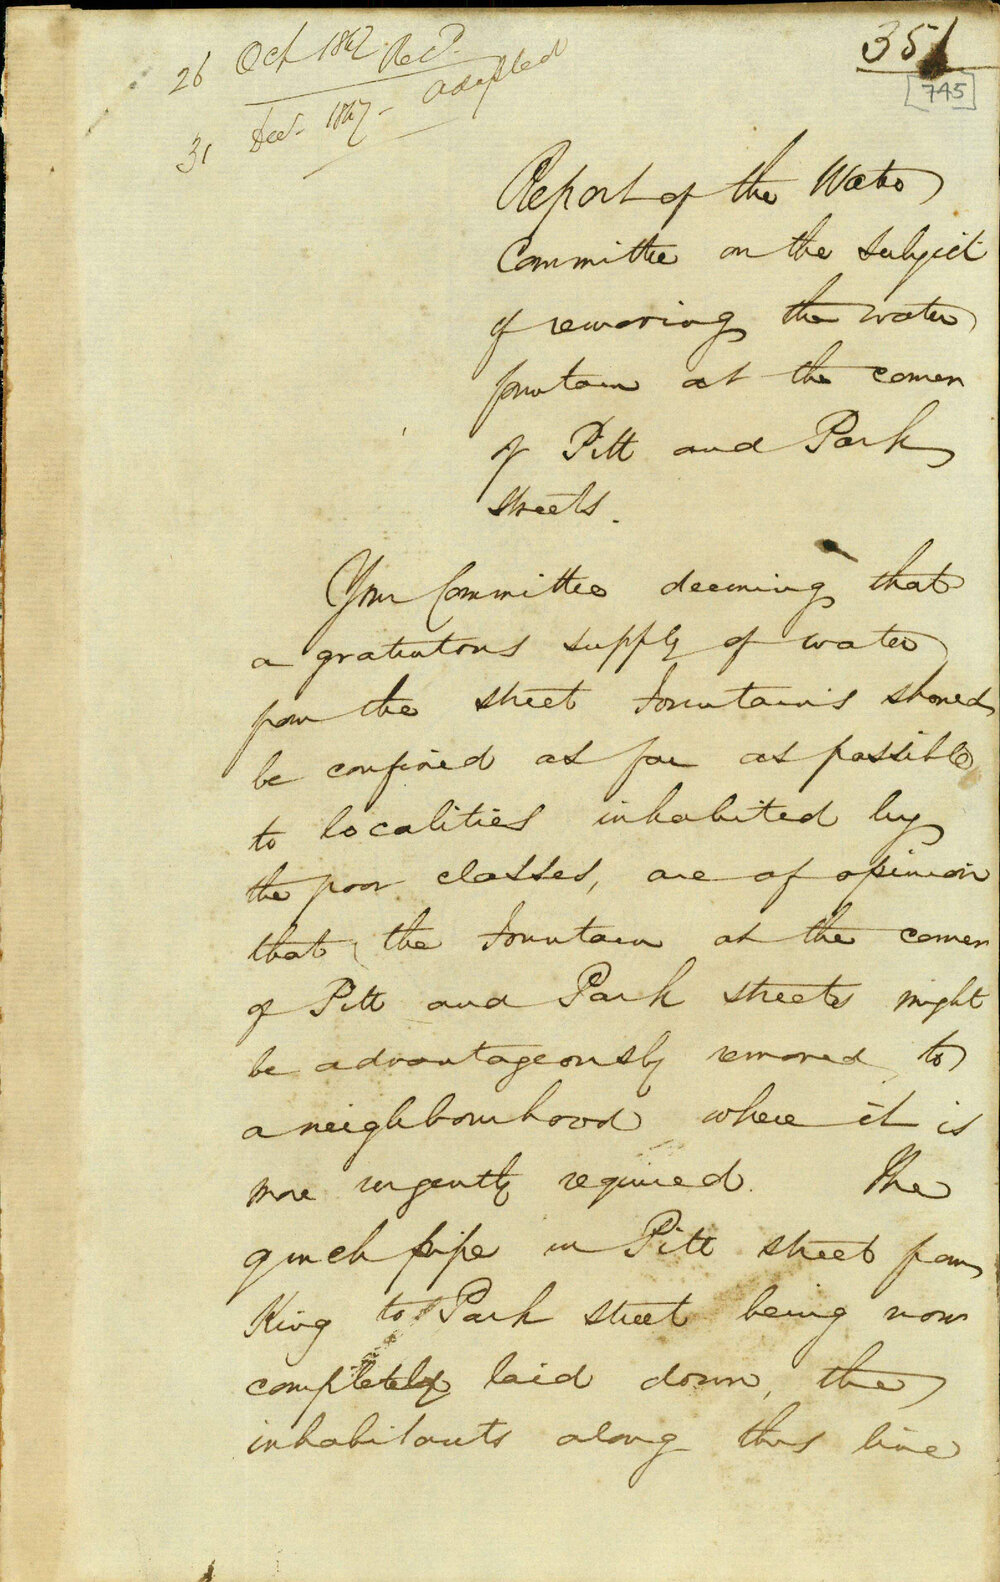 351
[745]
26 Oct 1847. Rec'd.
31 Decr. 1847 - adopted
Report of the Water
Committee on the subject
of removing the water
fountain at the corner
of Pitt and Park
streets.
Your Committee deeming that
a gratuitous supply of water
from the street fountains should
be confined as far as possible
to localities inhabited by
the poor classes, are of opinion
that the fountain at the corner
of Pitt and Park streets might
be advantageously removed to
a neighbourhood where it is
more urgently required. The
9 inch pipe in Pitt street from
King to Park street being now
completely laid down, the
inhabitants along this line